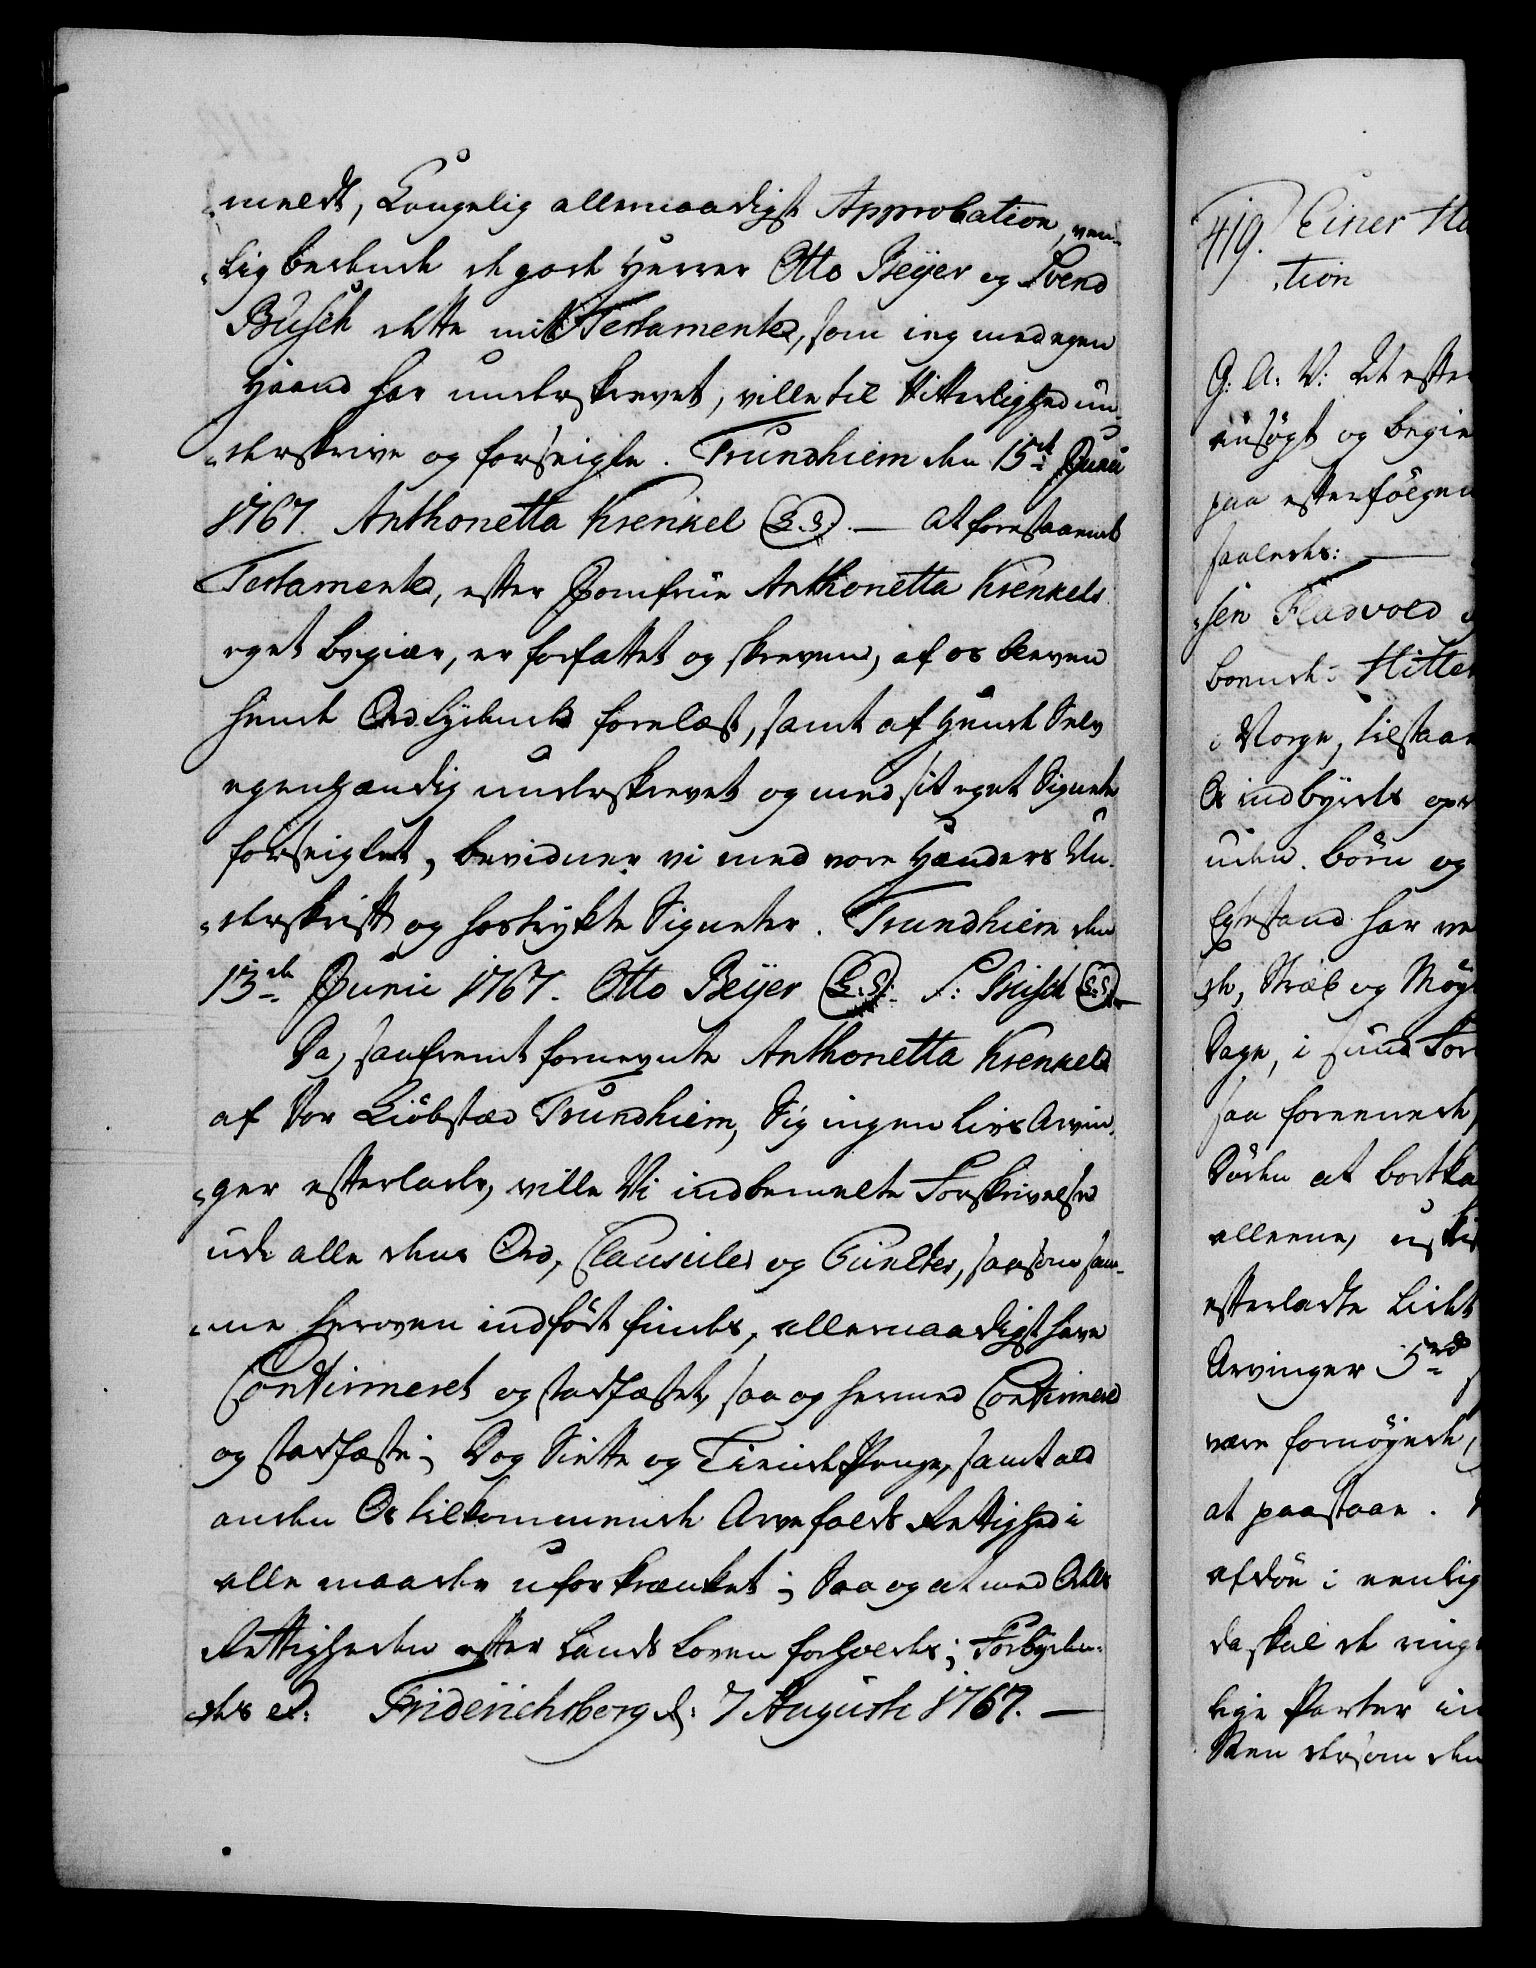 meldt, Kongelig allernaadigst Approbation, ven-
lig bedende de gode Herrer Otto Beÿer og Svend
Busch dette mit Testamente, som ieg med egen
Haand har underskrevet, ville til Vitterlighed un-
derskrive og forseigle. Trundhiem den 15de Junii
1767. Anthonetta Krenkel (L.S.). — At forestaaende
Testamente, efter Jomfrue Anthonetta Krenkels
eget begiær, er forfattet og skreven, af os bleven
hende Ord lydende forelæst, samt af Hende Selv
egenhændig underskrevet og med sit eget Signete
forseiglet, bevidner vi med vore Hænders Un-
derskrift og hostrykte Signeter. Trundhiem den
15de Junii 1767. Otto Beÿer (L.S:) S: Busch (L:S:) —
Da, saafremt fornevnte Anthonetta Krenkel
af Vor Kiöbstæd Trundhiem, Sig ingen Livs Arvin-
ger efterlader, ville Vi indbemelte Forskrivelse
udi alle dens Ord, Clausuler og Puncter, saasom sam-
me heroven indfört findes, allernaadigst have
Confirmeret og stadfæstet, saa og hermed Confirmere
og stadfæste; Dog Siette og Tiende Penge, samt ald
anden Os tilkommende Arvefalds Rettighed i
alle maader uforkrænket; Saa og at med Odels
Rettigheden efter Lands Loven forholdes; Forbyden-
des etc: Friderichsberg d: 7 Augusti 1767. —
419. Einer
tion
G: A: V: At efter
ansögt og begie
paa efterfölgen
saaledes: —
sen Fladvold
boende i Hitter
i Norge, tilstaar
Os indbyrdes opr
uden börn og
Egtestand har ve
de, Stræb og Möy
Dage, i sund For
saa foreenede,
Döden at bortka
alleene, uski
efterladte lidet
Arvinger
være fornöyede,
at paastaae.
afdöe i eenlig
da skal de ring
lige Parter in
Men dersom den